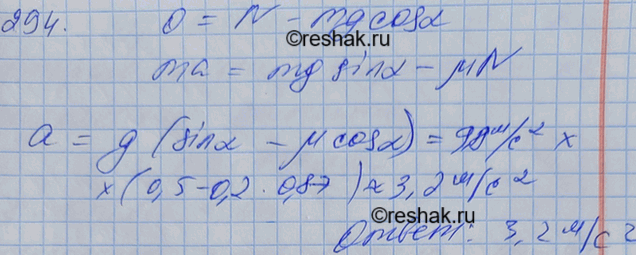 294. 0 = N - mg cosα
©reshak.ru
ma = mg sinα - μN
a = g (sinα - μ cosα) = 9,8 м/с² ×
× (0,5 - 0,2 · 0,87) ≈ 3,2 м/с²
©reshak.ru
Ответ: 3,2 м/с²